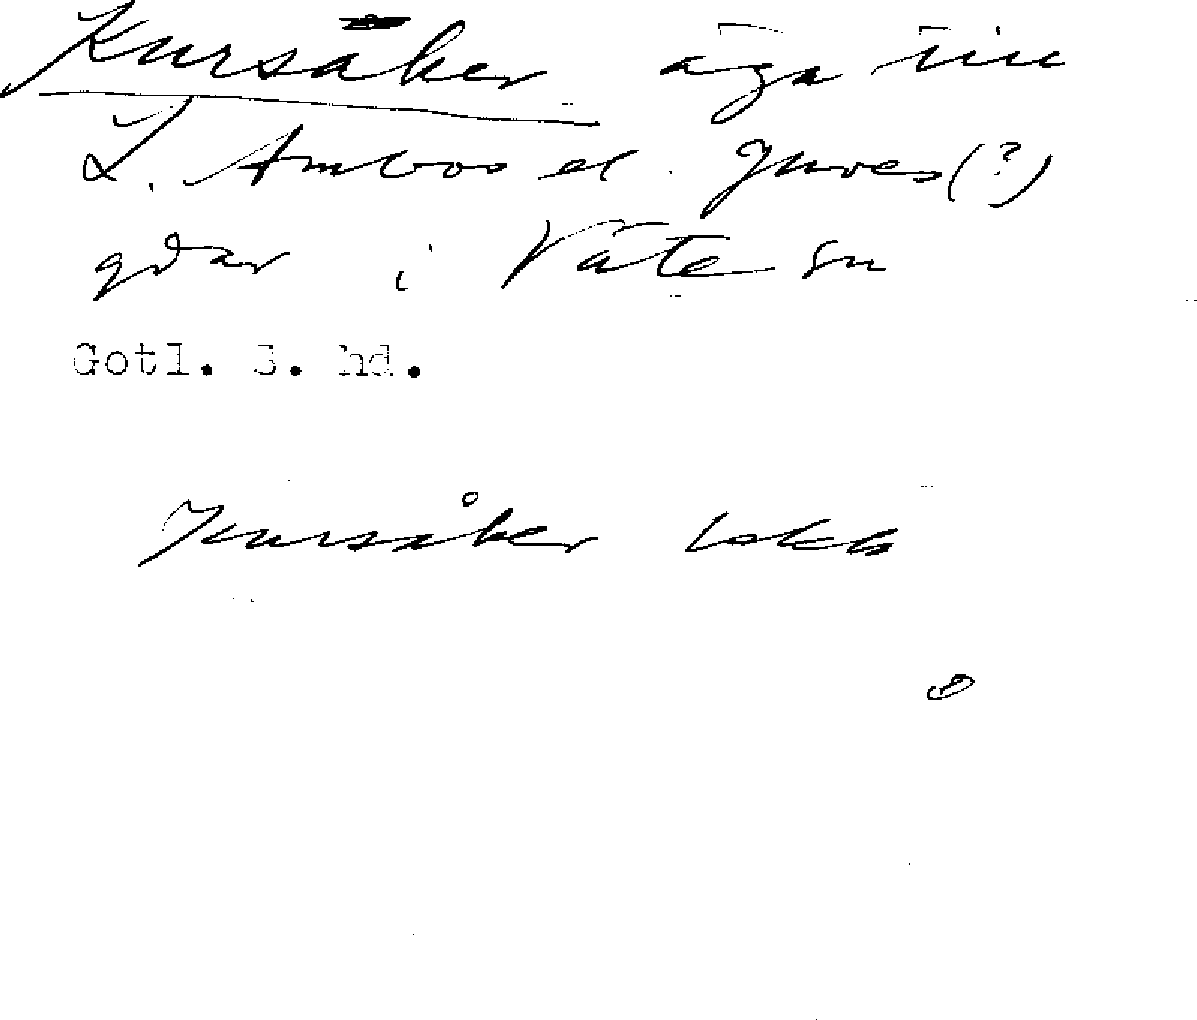 Kursåker äga till
L. Ambos el. Jures(?)
gdar i Väte sn
Gotl. 3. hd.
Kursåker